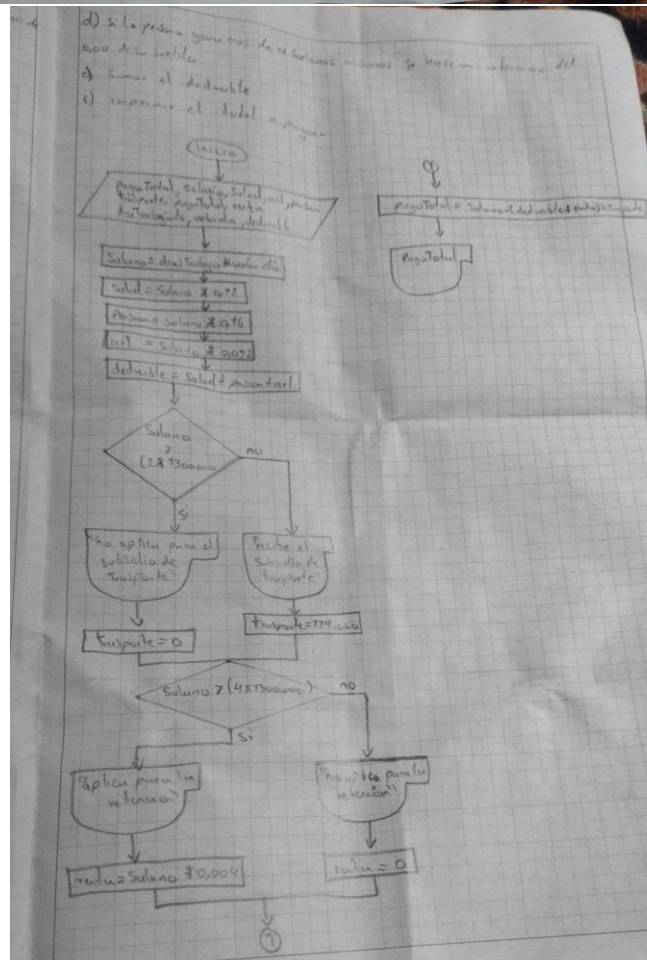 d) si la persona gana mas de 4 salarios minimos se hace un retencion del
0,04 de su sueldo
e) sumar el deducible
f) imprimir el total a pagar
inicio
pagoTotal, salario, salud, arl, pension
trasporte, pagoTotal, renta
diaTrabajado, valordia, deducible
Salario = diasTrabajo * valor dia
Salud = Salario * 0,12
Pension = Salario * 0,16
arl = Salario * 0,052
deducible = Salud + pension + arl
Salario
>
(2*1300000
no
Si
"no aplica para el
subsidio de
Trasporte"
"recibe el
Subsidio de
trasporte"
trasporte = 0
trasporte =
Salario > (4x1300.000)
no
Si
"aplica para la
retencion"
"no aplica para la
retencion"
renta = Salario * 0,004
renta = 0
1
1
pagoTotal = Salario-(deducible+renta)+trasporte
PagoTotal